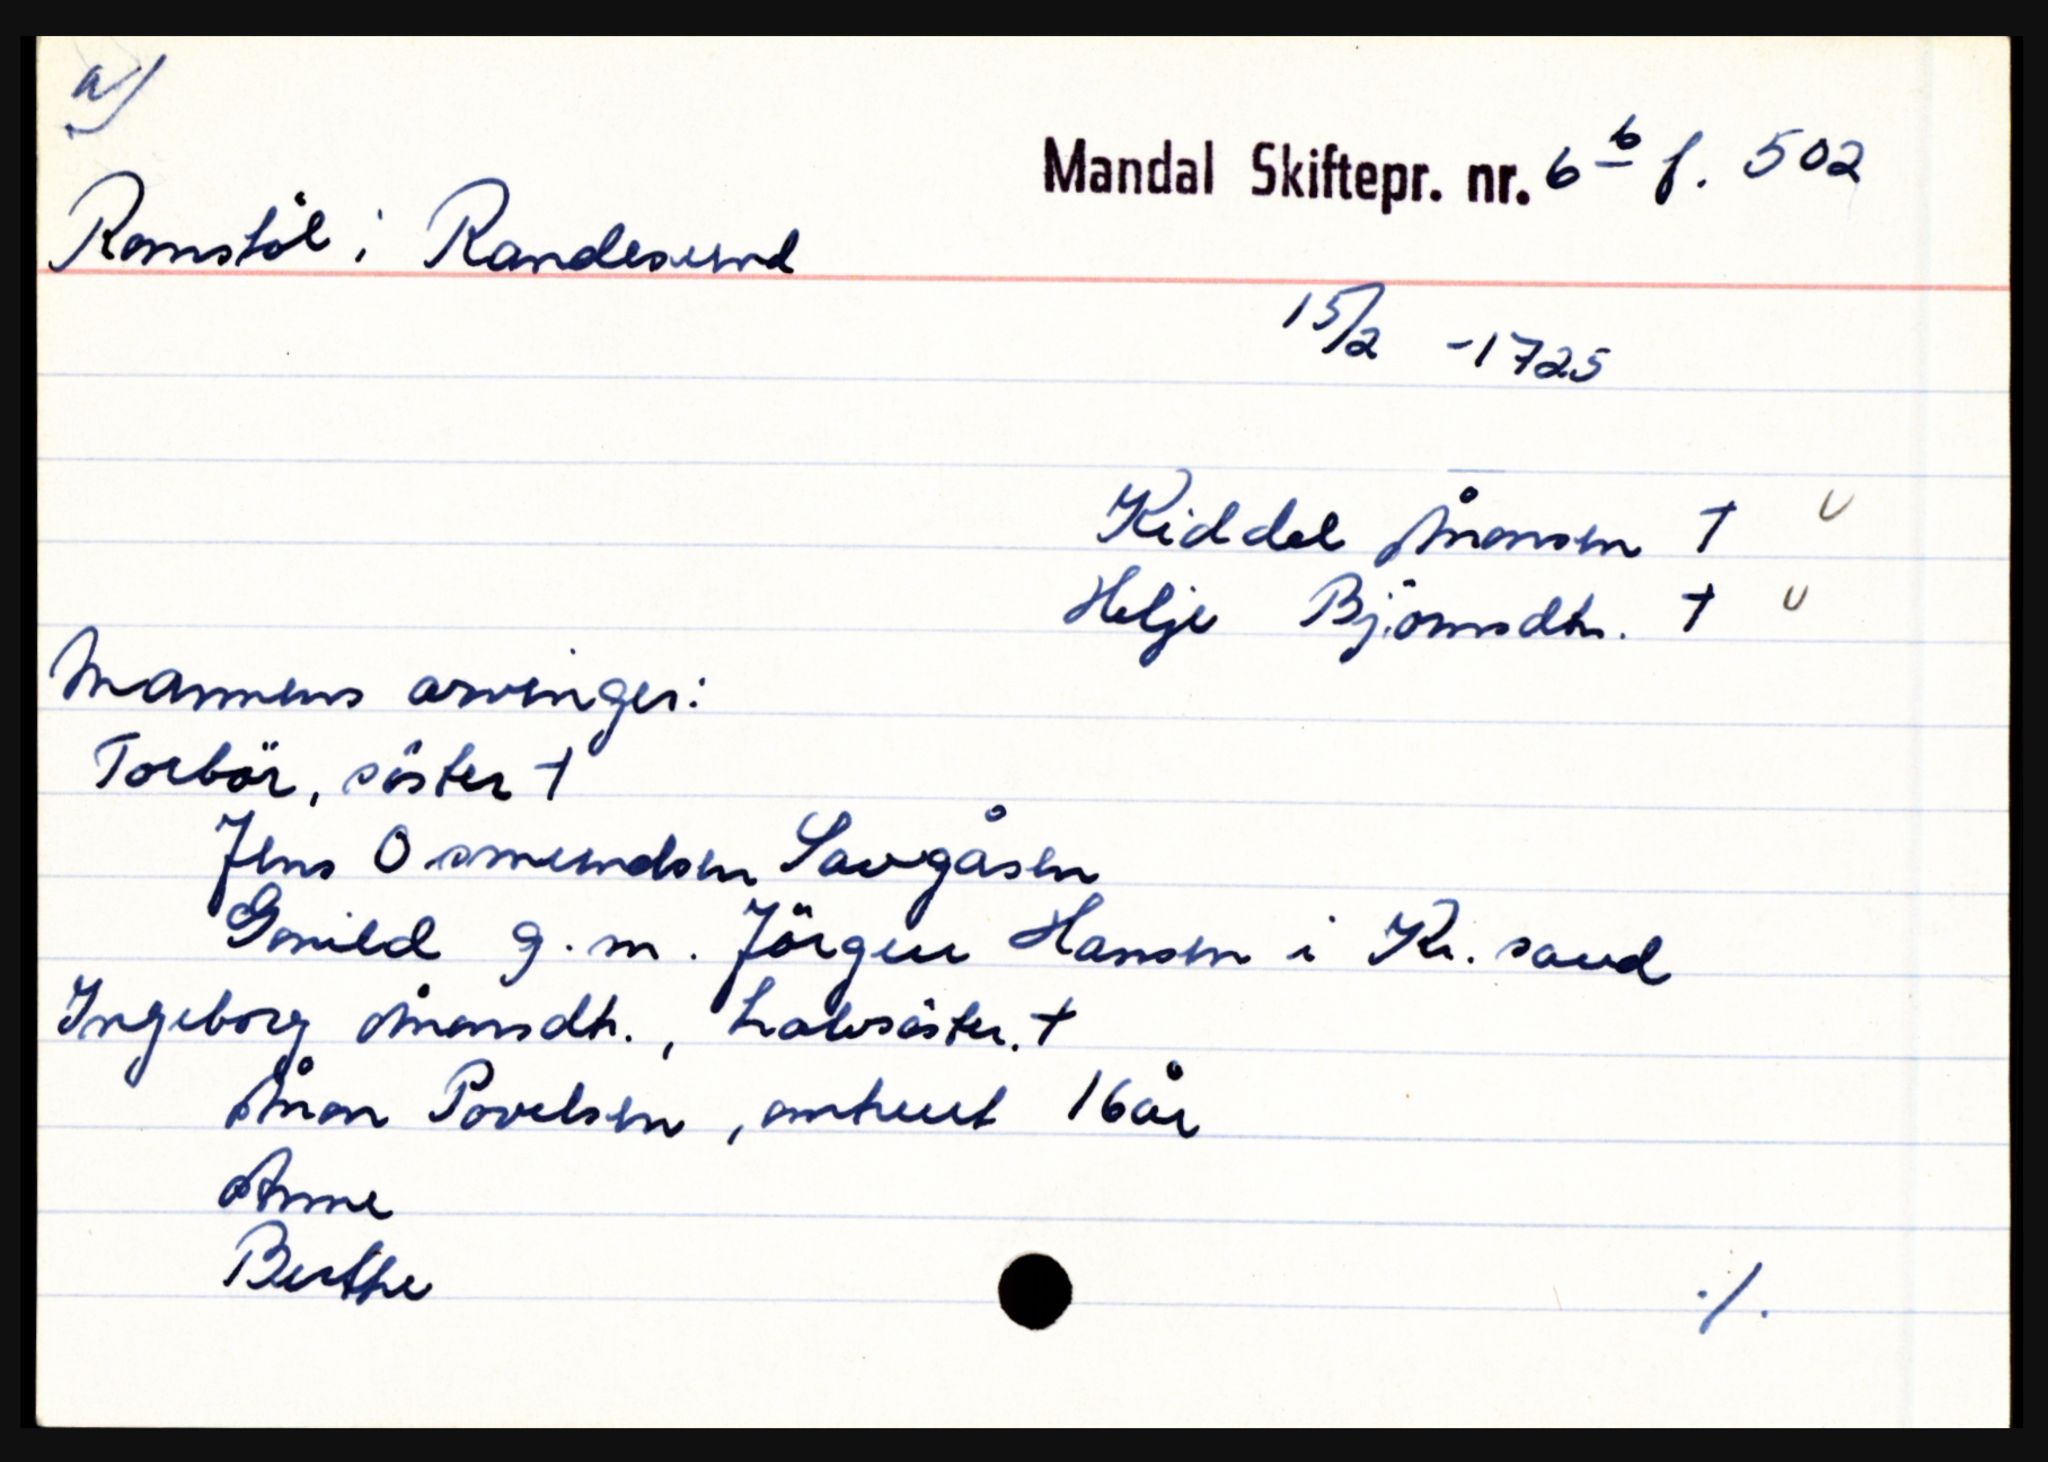 a)
Mandal Skiftepr. nr. 6 b f. 502
Romstöl i Randesund
15/2 -1725
Kiddel Ånonsen † u
Helje Björnsdtr. † u
Mannens arvinger:
Torbör, söster †
Jens Osmundsen Savgåsen
Gonild g.m. Jörgen Hansen i Kr.sand
Ingeborg Ånonsdtr., halvsöster. †
Ånon Povelsen, omtrent 16 år
Anne
Berthe
./.